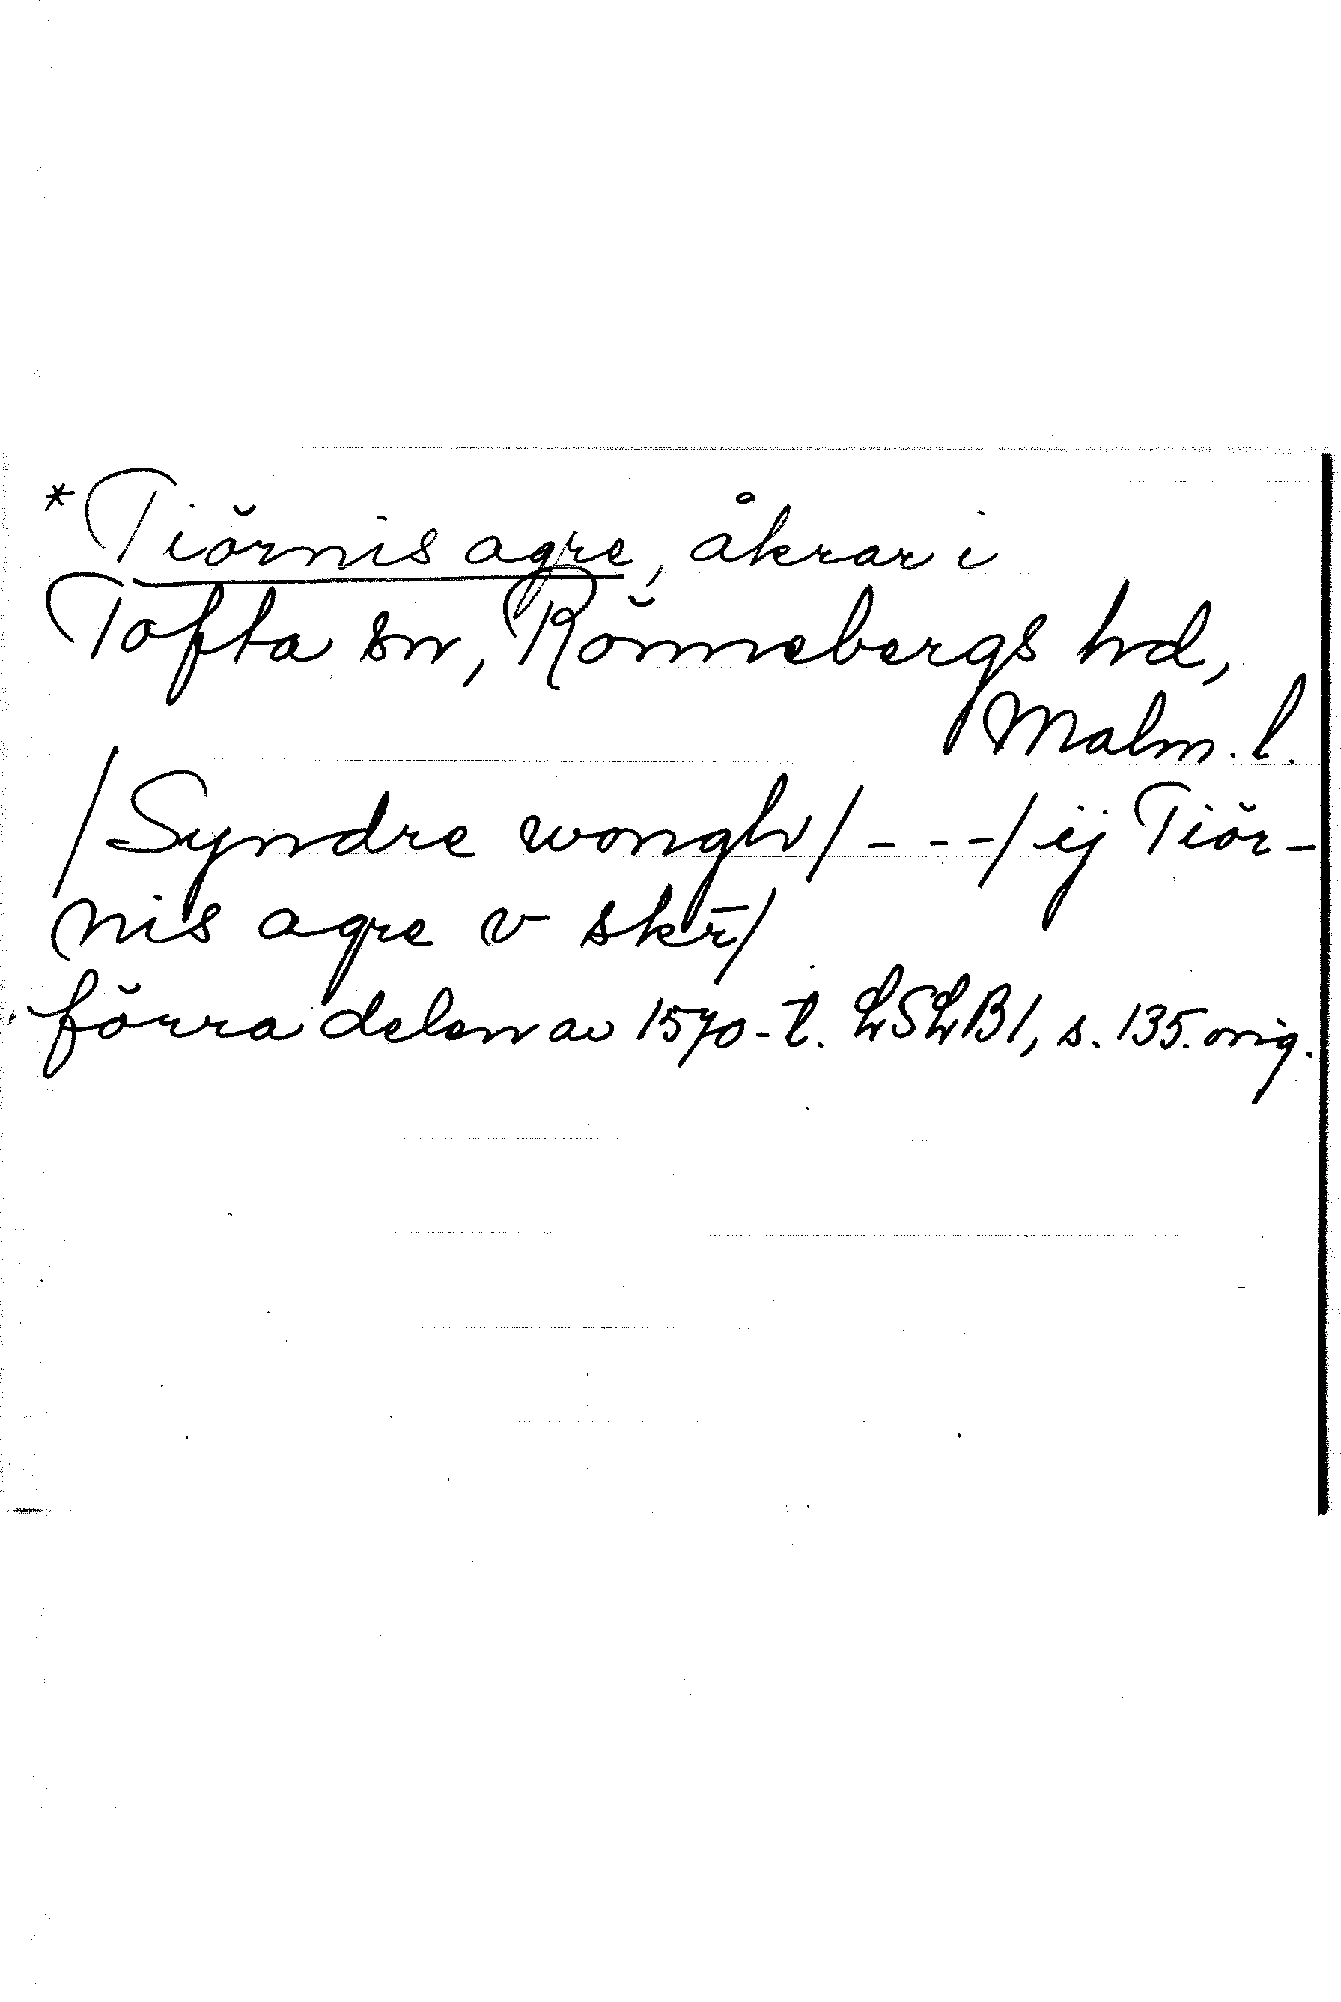 *Tiörnis agre, åkrar i
Tofta sn, Rönnebergs hd,
Malm. l.
/Syndre wongh/ - - -/ ij Tiör-
nis agre v skr̄/
förra delen av 1570-t. LSLB1, s. 135. orig.